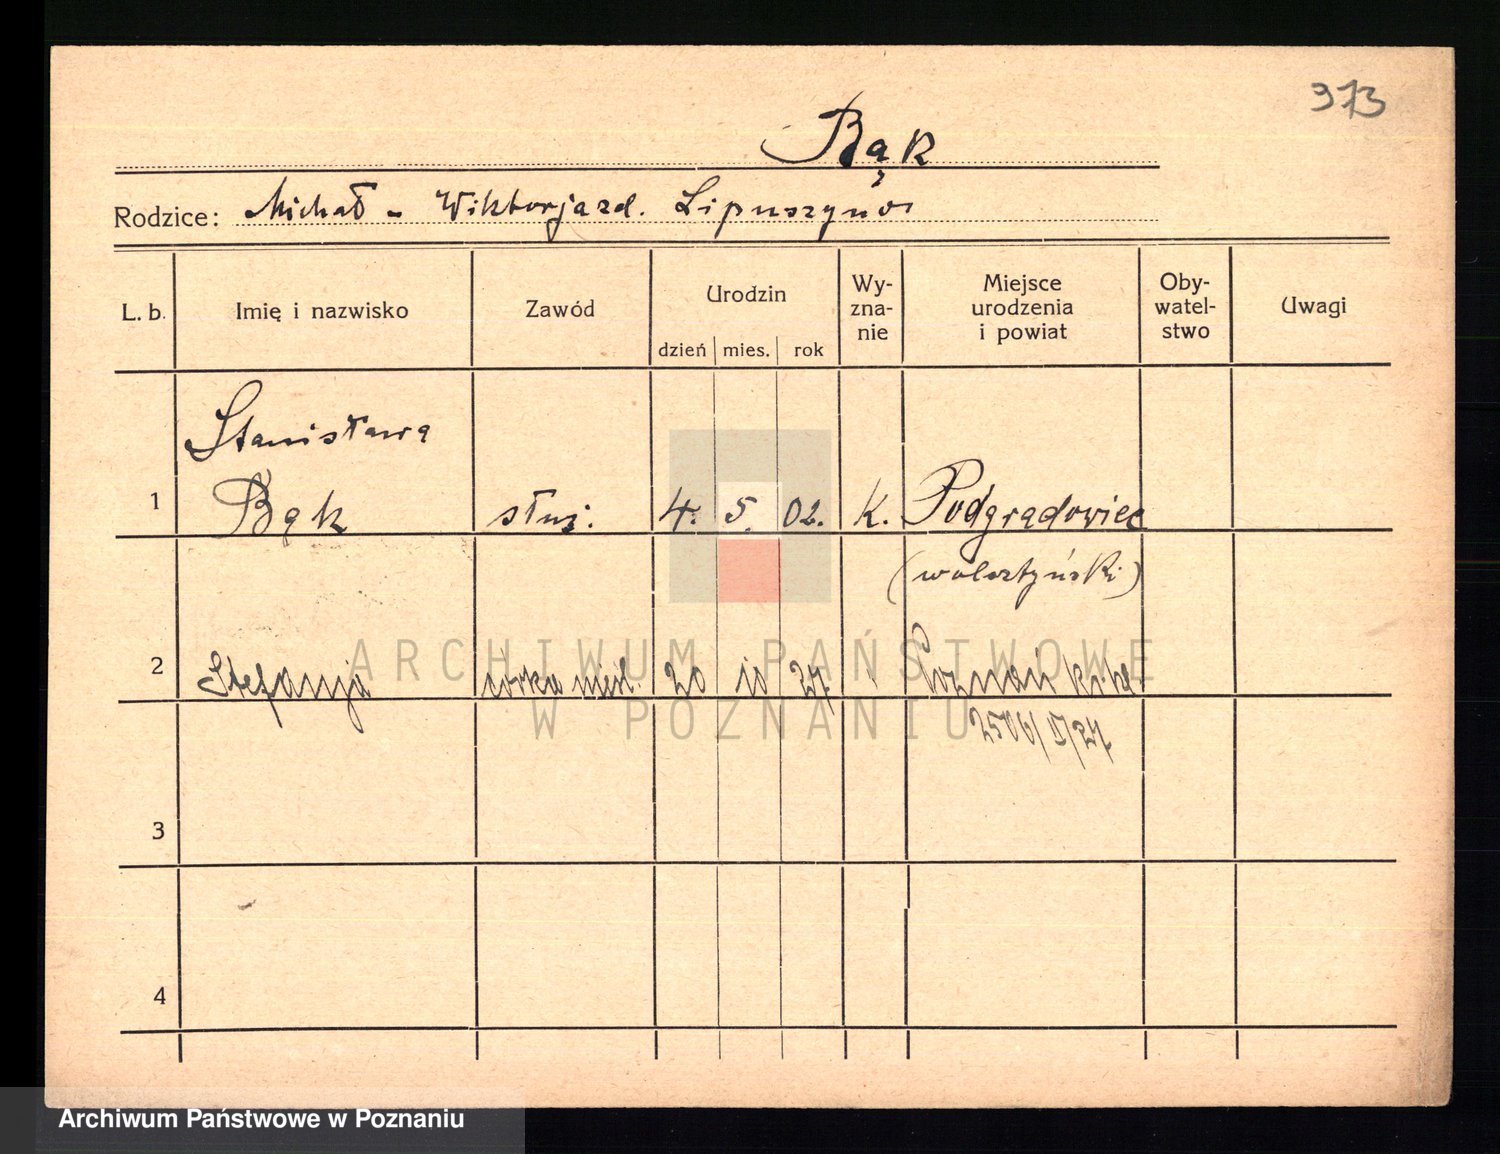 373
Bąk
Rodzice: Michał - Wiktorja zd. Lipuszyno
L. b.
Imię i nazwisko
Zawód
Urodzin
dzień mies. rok
Wy-
zna-
nie
Miejsce
urodzenia
i powiat
Oby-
watel-
stwo
Uwagi
Stanisława
1 Bąk służ. 4. 5. 02. K. Podgradowiec
(wolsztyński)
2 Stefanja córka nieśl. 20 10 27 Poznań
3
4
ARCHIWUM PAŃSTWOWE
W POZNANIU
Archiwum Państwowe w Poznaniu